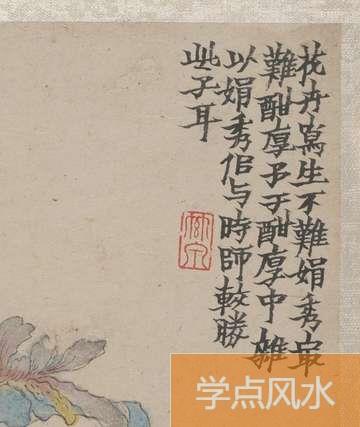 花卉寫生不難娟秀最
難酣厚予于酣厚中雜
以娟秀佀与時師較勝
些子耳
学点风水